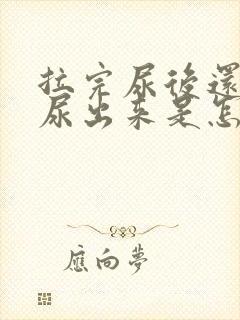 拉完尿後還
尿出来是怎
應向夢